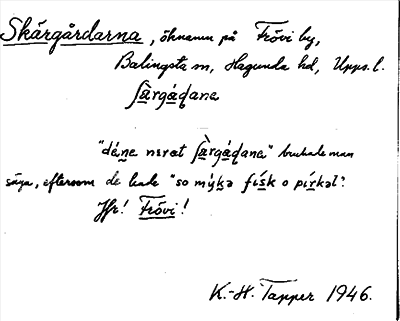 Skärgårdarna, öknamn på Frövi by,
Balingsta sn, Hagunda hd, Upps. l.
ʃä̀rgáɖana
"dé̱ne nerət ʃä̀rgáɖana" brukade man
säga, eftersom de hade "so mýkə fíʃk o pírkəl".
Jfr! Frövi!
K.-H. Tapper 1946.